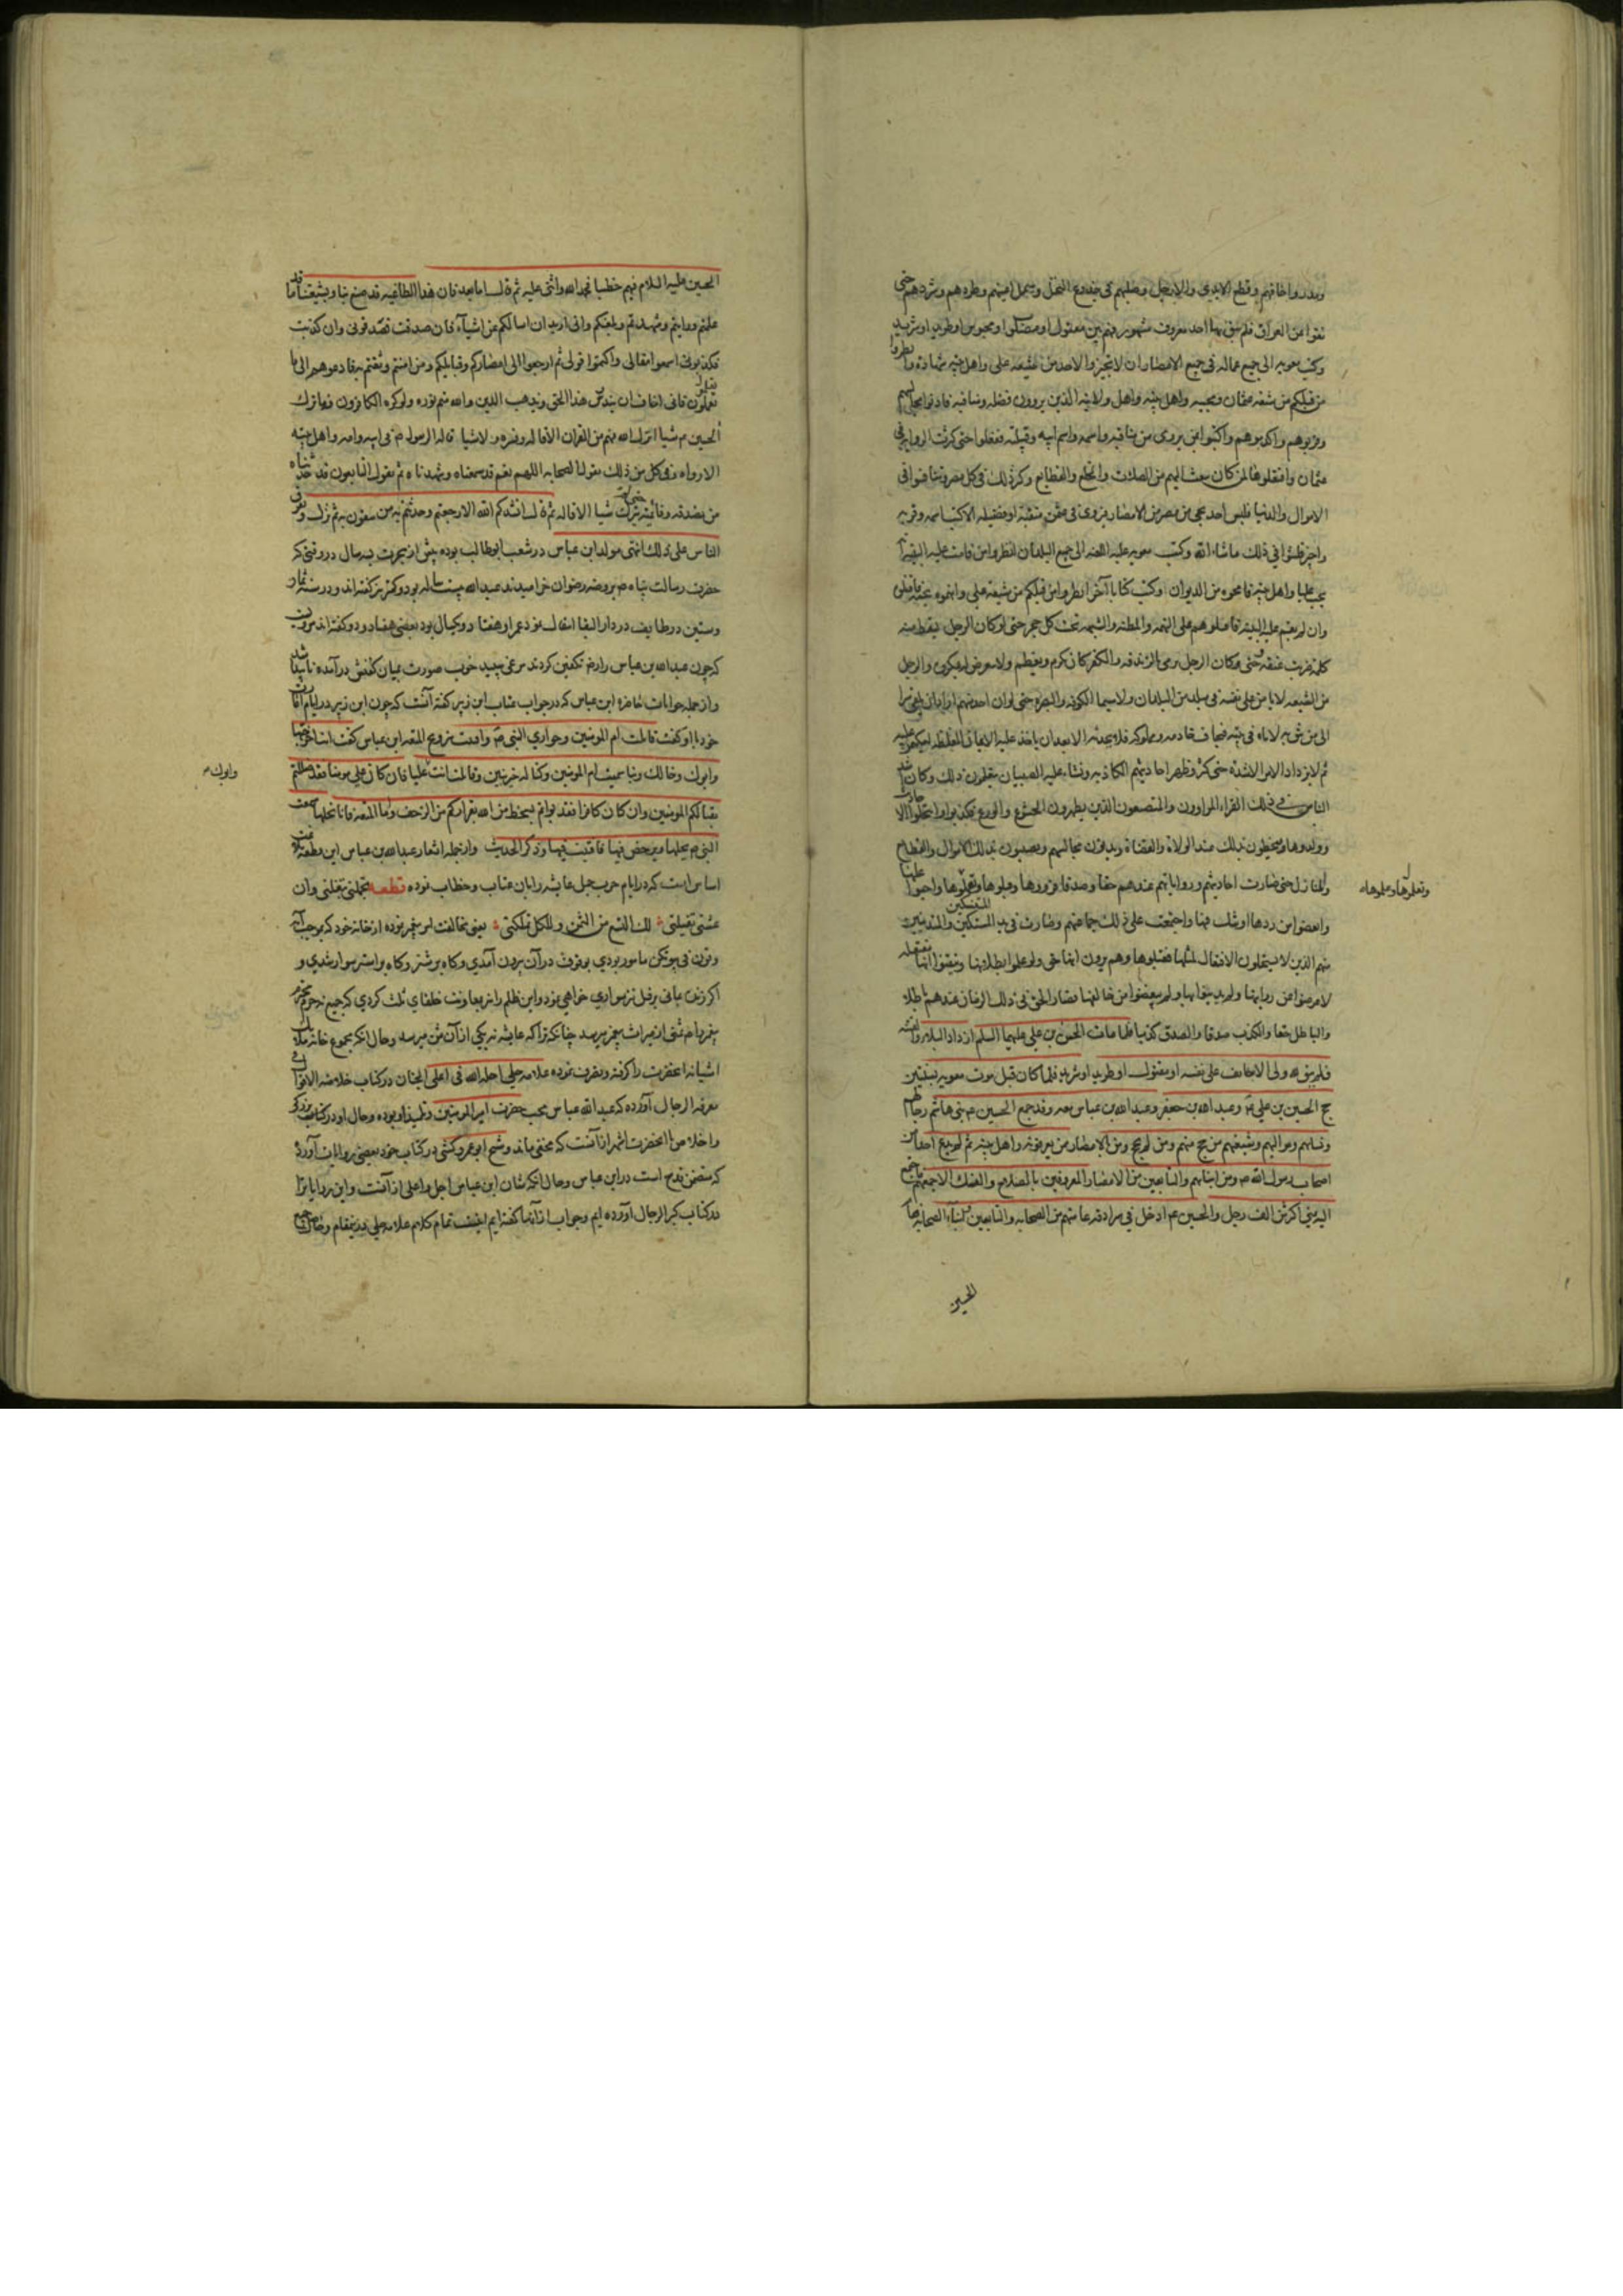 ومدر واخافهم وقطع الايدى والارجل وصلبهم فى جذوع النخل وسمل اعينهم وطردهم وشردهم حتى
نفوا عن العراق فلم يبق بها احد معروف مشهور فهم بين مقتول او مصلوب او محبوس او طريد او شريد
وكتب معويه الى جميع عماله فى جميع الامصار ان لا تجيزوا لاحد من شيعه على واهل بيته شهادة وانظروا
من قبلكم من شيعه عثمان ومحبيه واهل بيته واهل ولايته الذين يروون فضله ومناقبه فادنوا مجالسهم
وقربوهم واكرموهم واكتبوا بمن يروى من مناقبه واسمه واسم ابيه وقبيلته ففعلوا حتى كثرت الروايه فى
عثمان وافتعلوها لما كان يبعث اليهم من الصلات والخلع والقطايع وكثر ذلك فى كل مصر وتنافسوا فى
الاموال والدنيا فليس احد يجى من مصر من الامصار فروى فى عثمن منقبة او فضيله الا كتب اسمه وقربه
واجيز فلبثوا فى ذلك ماشاء الله وكتب معويه عليه اللعنه الى جميع البلدان انظروا من قامت عليه البينه انه
يحب عليا واهل بيته فامحوه من الديوان وكتب كتابا آخر انظروا من قبلكم من شيعة على واتهموه بحبه فاقتلوه
وان لم يقم عليه البينه فاقتلوهم على التهمه والظنه والشبهه تحت كل حجر حتى لو كان الرجل يسقط منه
كلمه ضربت عنقه وحتى كان الرجل يرمى بالزندقه والكفر كان يكرم ويعظم ولا يعرض له بمكروه والرجل
من الشيعه لا يأمن على نفسه فى بلد من البلدان ولاسيما الكوفه والبصره حتى لو ان احدا منهم اراد ان يلقى سرا
الى من يثق به لاتاه فى بيته فيخاف خادمه ومملوكه فلا يحدثه الا بعد ان ياخذ عليه الايمان المغلظه ليكتمن عليه
ثم لا يزداد الامر الا شده حتى كثر وظهر احاديثهم الكاذبه ونشاء عليه الصبيان يتعلمون ذلك وكان اشد
الناس فى ذلك القراء المراءون والمتصنعون الذين يظهرون الخشوع والورع فكذبوا وانتحلوا الاحاديث
وولدوها ويحظون بذلك عند الولاة والقضاة ويدنون مجالسهم ويصيبون بذلك الاموال والقطايع
والمنازل حتى صارت احاديثهم ورواياتهم عندهم حقا وصدقا فرووها وقبلوها وتعلموها واحبوا عليها
وتعلموها وعلموها
وابغضوا من ردها او شك فيها واجتمعت على ذلك جماعتهم وصارت فى يد المتنسكين والمتدينين
منهم الذين لا يستحلون الافتعال لمثلها فقبلوها وهم يرون انها حق ولو علموا بطلانها وتيقنوا انها مفتعله
لاعرضوا عن روايتها ولم يدينوا بها ولم يبغضوا من خالفها فصار الحق فى ذلك الزمان عندهم باطلا
والباطل حقا والكذب صدقا والصدق كذبا فلما مات الحسن بن على عليهما السلم ازداد البلاء والفتنه
فلم يبق لله ولى الا خائف على نفسه او مقتول او طريد او شريد فلما كان قبل موت معويه بسنتين
حج الحسين بن على وعبد الله بن جعفر وعبد الله بن عباس معه وقد جمع الحسين م بنى هاشم رجالهم
ونساءهم ومواليهم وشيعتهم من حج منهم ومن لم يحج ومن الامصار من يعرفونه واهل بيته ثم لم يدع احدا من
اصحاب رسول الله ص ومن ابنائهم والتابعين من الامصار المعروفين بالصلاح والنسك الا جمعهم فاجتمع
اليه بمنى اكثر من الف رجل والحسين عم ادخل فى سرادقه عامتهم من الصحابه والتابعين وابناء الصحابه فقام
الحسين
الحسين عليه السلام فيهم خطيبا فحمد الله واثنى عليه ثم قال اما بعد فان هذا الطاغيه قد صنع بنا وبشيعتنا ما قد
علمتم ورايتم وشهدتم وبلغكم وانى اريد ان اسالكم عن اشياء فان صدقت فصدقونى وان كذبت
فكذبونى اسمعوا مقالى واكتموا قولى ثم ارجعوا الى امصاركم وقبايلكم ومن امنتم ووثقتم به فادعوهم الى ما
تعلمون فانى اخاف ان يندرس هذا الحق ويذهب الدين والله متم نوره ولو كره الكافرون فما ترك
الحسين م شيا انزل الله فيهم من القران الا قاله وفسره ولا شيا قاله الرسول م فى ابيه وامه واهل بيته
الا رواه وفى كل من ذلك يقول الصحابه اللهم نعم قد سمعناه وشهدناه ثم يقول التابعون قد حدثناه
من نصدقه وناتمنه حتى لم يترك شيا الا قاله ثم قال انشدكم الله الا رجعتم وحدثتم به من تثقون به ثم نزل وتفرق
الناس على ذلك انتهى مولد ابن عباس در شعب ابو طالب بوده پيش از هجرت بسه سال در وقتى كه
حضرت رسالت پناه ص بروضه رضوان خراميدند عبد الله سيزده ساله بود وكمتر نيز گفته اند ودر سنه ثمان
وستين در طايف در دار البقا انتقال نمود عمر او هفتاد ويكسال بود بعضى هفتاد ودو گفته اند مرويست
كه چون عبد الله بن عباس را در قبر تكفين كردند مرغى سپيد خوب صورت بميان كفنش درآمده ناپيدا شد
واز جمله جوابات غامزه ابن عباس كه در جواب عتاب ابن زبير گفته آنست كه چون ابن زبير در ايام امارت
خود با او گفت قاتلت ام المومنين وحوارى النبى ص وافتيت بتزويج المتعه ابن عباس گفت انت اخرجتها
وابوك وخالك وبنا سميت ام المومنين وكنا لها خير بنين وقاتلت انت عليا فان كان على مومنا فقد ضللتم
وابوك م
بقتالكم المومنين وان كان كافرا فقد بؤتم بسخط من الله بفراركم من الزحف واما المتعه فانا نحلها سمعت
النبى م يحلها ويرخص فيها فافتيت فيها وذكر الحديث واز جمله اشعار عبد الله بن عباس اين قطعه بلاغت
اساس است كه در ايام حرب جمل عايشه را بآن عتاب وخطاب نموده قطعه تجملتى تبغلتى وان
عشتى تفيلتى لك التسع من الثمن وللكل تملكتى يعنى مخالفت امر پيغمبر نموده از خانه خود كه بموجب آيه
وقرن فى بيوتكن مامور بودى بوقوف در آن بيرون آمدى وگاه بر شتر وگاه بر استر سوار شدى و
اگر زنده بمانى بر فيل نيز سوارى خواهى نمود واين ظلم را نيز بمعاونت خلفاى ثلث كردى كه جميع زنان محترم
پيغمبر را هم ثمنى از ميراث پيغمبر ميرسد چنانكه ترا كه عايشه نيز يكى از آن ثمن ميرسد وحال آنكه مجموع خانه ملك
اشيانه آنحضرت را گرفته وتصرف نموده علامه حلى احله الله فى اعلى الجنان در كتاب خلاصه الاقوال فى
معرفه الرجال آورده كه عبد الله عباس محب حضرت امير المومنين وتلميذ او بوده وحال او در كتاب بزرگى
واخلاص با آنحضرت اشهر از آنست كه مخفى ماند وشيخ ابو عمرو كشى در كتاب خود بعضى روايات آورده
كه متضمن قدح است در ابن عباس وحال آنكه شان ابن عباس اجل واعلى از آنست واين روايات را
در كتاب كبير الرجال آورده ايم وجواب از آنها گفته ايم اينست تمام كلام علامه حلى درينمقام وخاطر